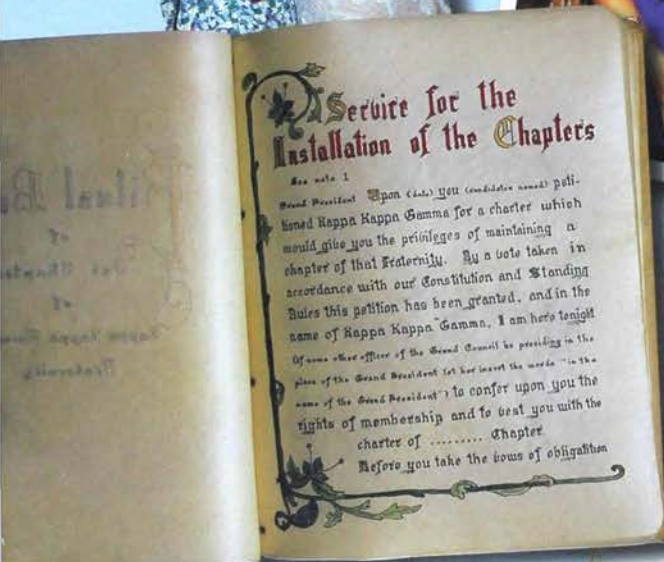 A Service for the
Installation of the Chapters
See note 1
Grand President Upon (date) you (candidates named) peti-
tioned Kappa Kappa Gamma for a charter which
would give you the privileges of maintaining a
chapter of that Fraternity. By a vote taken in
accordance with our Constitution and Standing
Rules this petition has been granted, and in the
name of Kappa Kappa Gamma, I am here tonight
(if some other officer of the Grand Council be presiding in the
place of the Grand President let her insert the words "in the
name of the Grand President") to confer upon you the
rights of membership and to vest you with the
charter of ......... Chapter
Before you take the vows of obligation